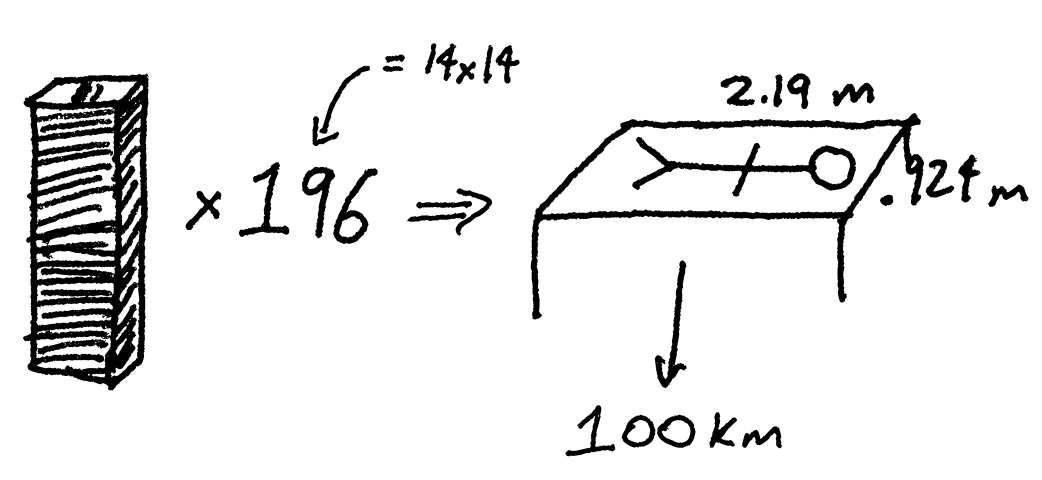 = 14x14
x 196 ⇒
2.19 m
.924 m
100 Km